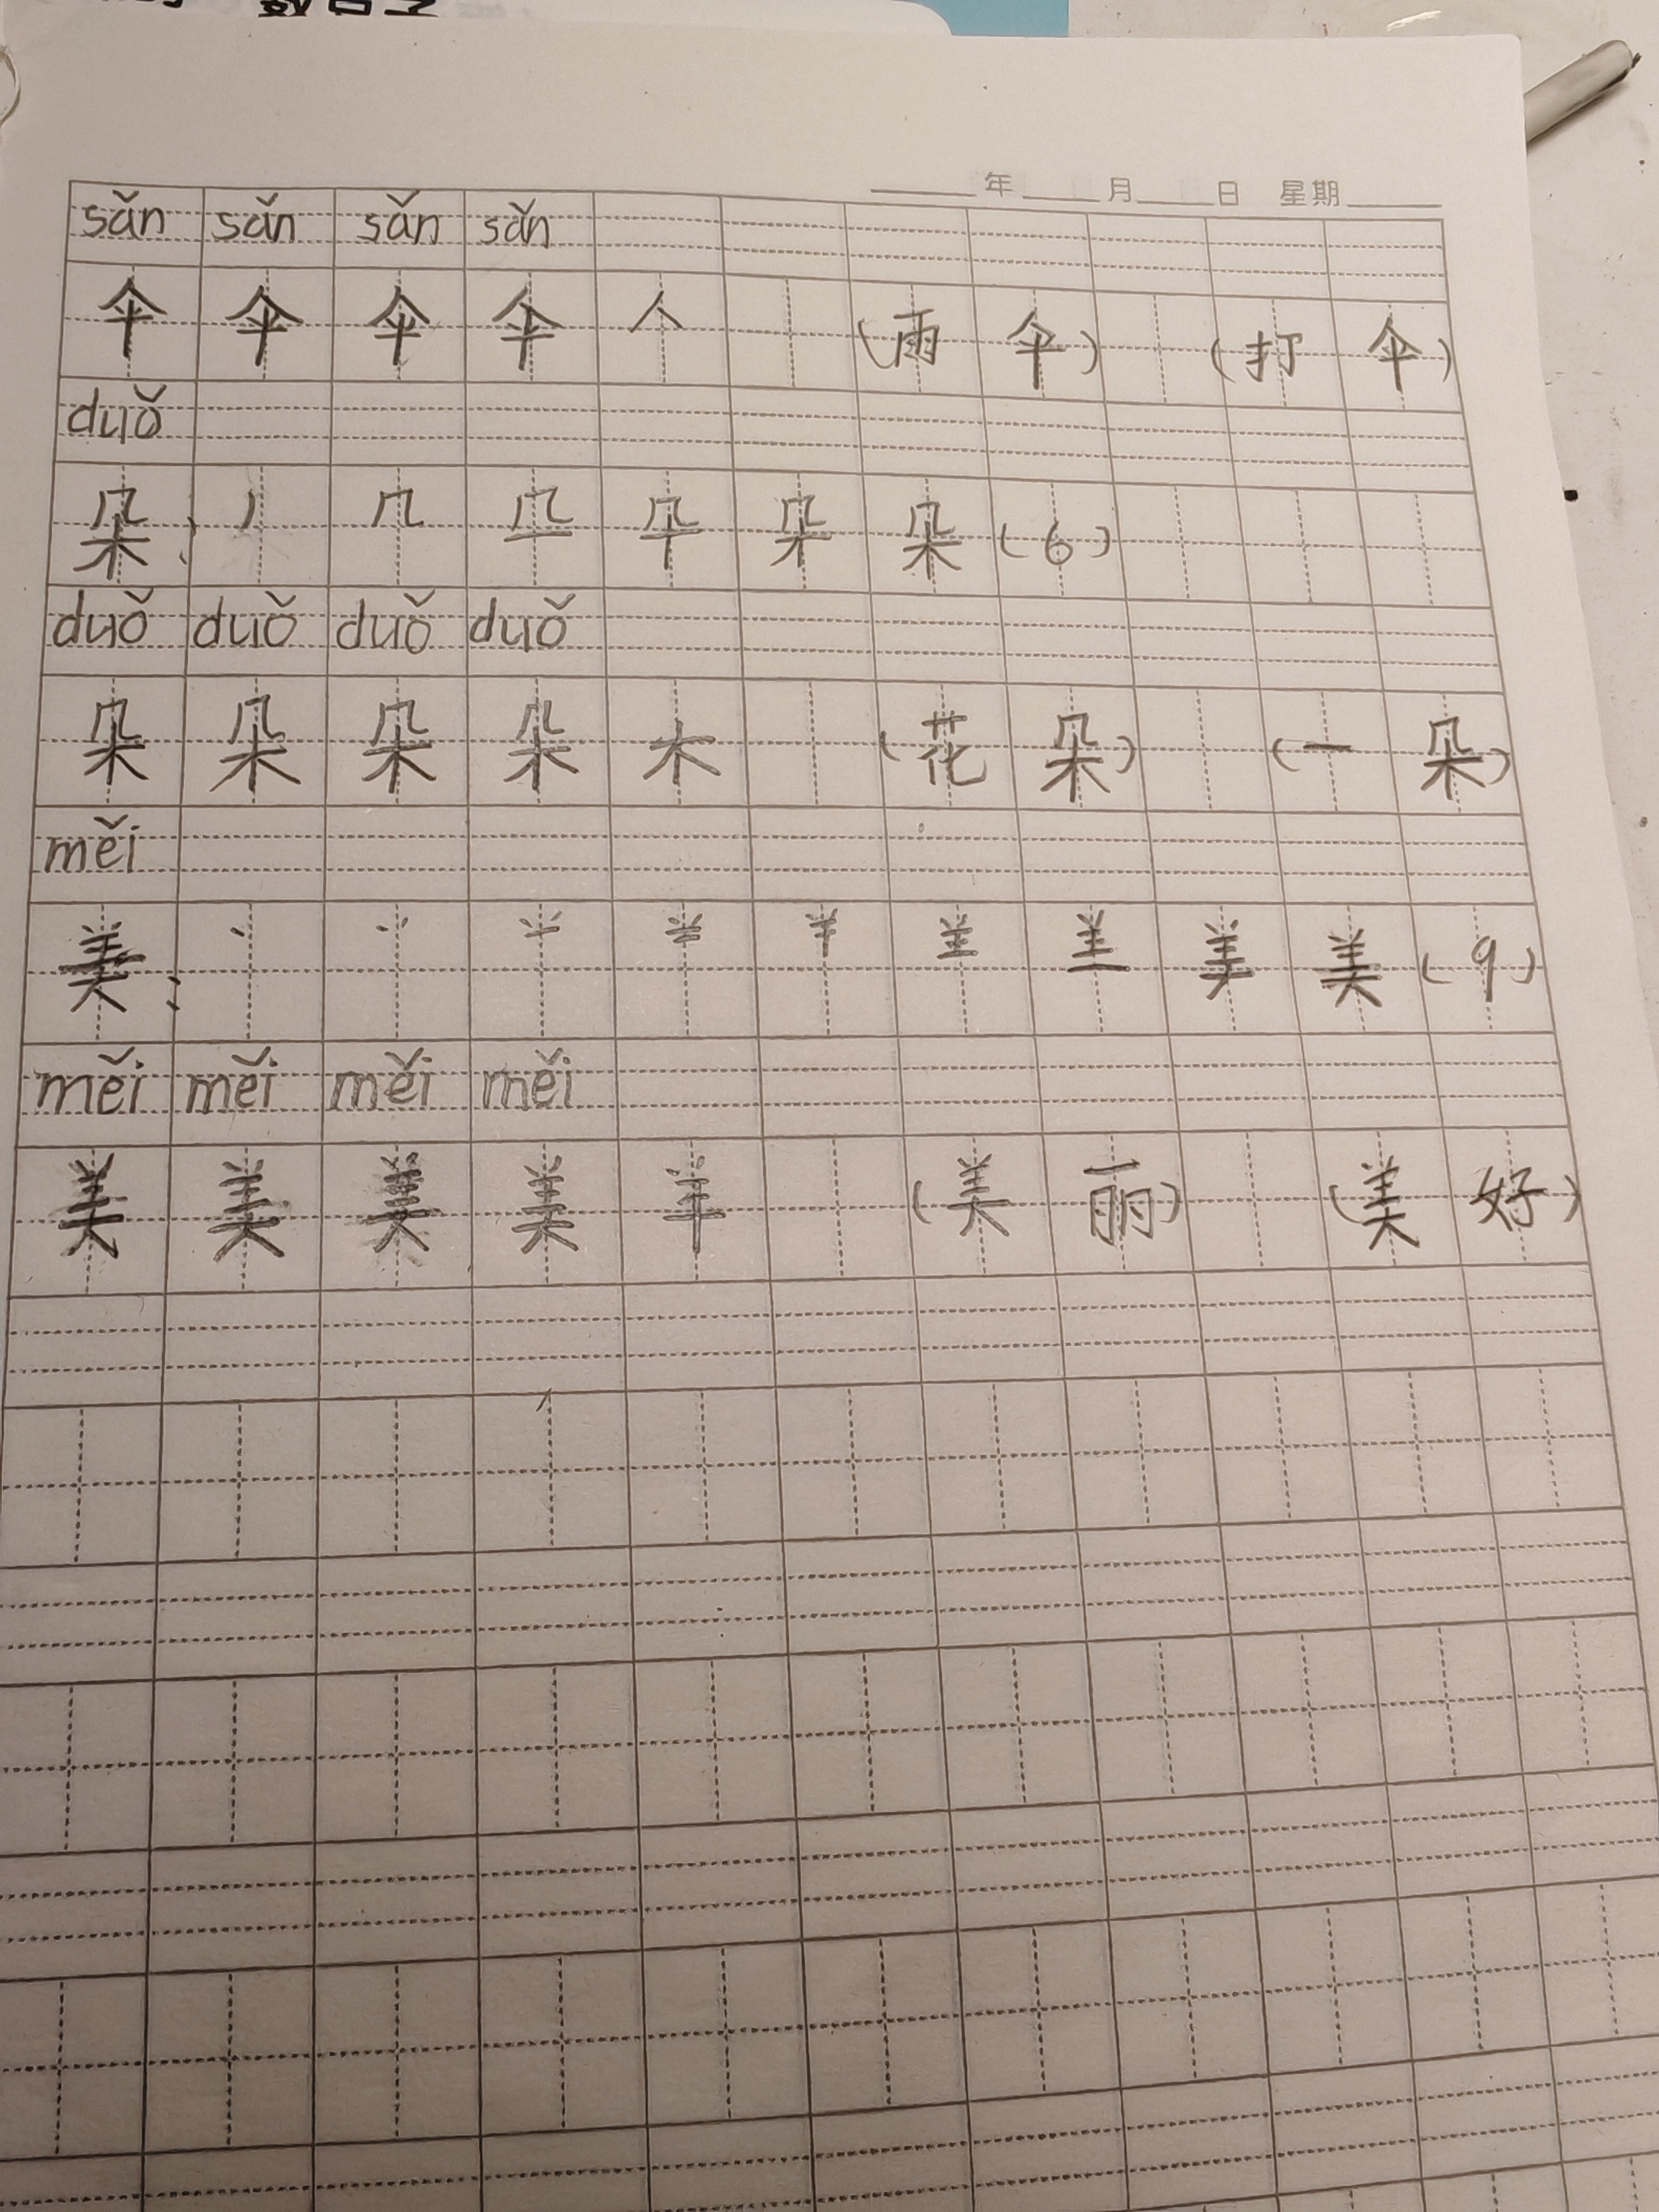 年 月 日 星期
sǎn sǎn sǎn sǎn
伞 伞 伞 伞 人 (雨伞) (打伞)
duǒ
朵: 丿 几 朵 (6)
duǒ duǒ duǒ duǒ
朵 朵 朵 朵 木 (花朵) (一朵)
měi
美: 丶 丷 美 (9)
měi měi měi měi
美 美 美 美 羊 (美丽) (美好)